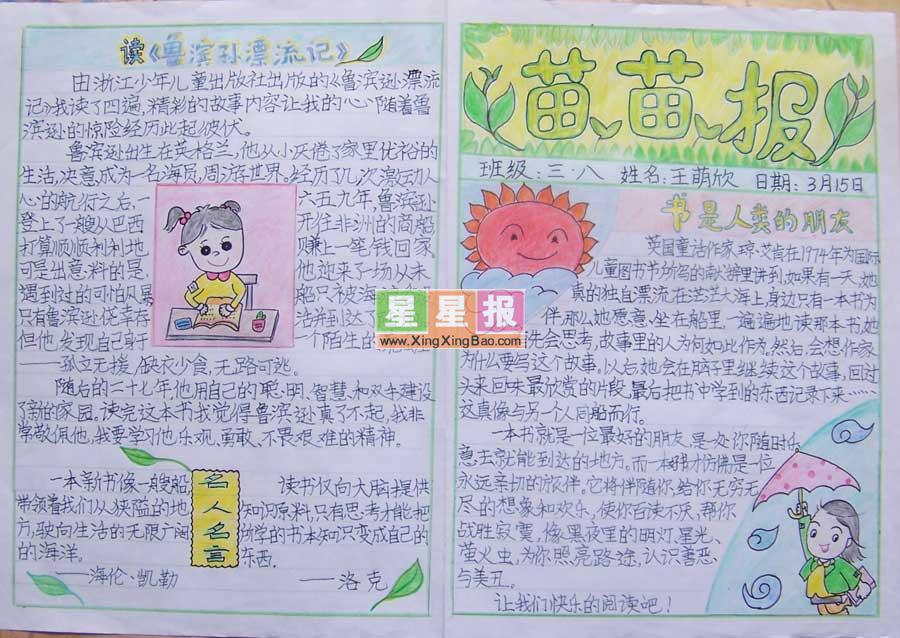 读《鲁滨孙漂流记》
由浙江少年儿童出版社出版的《鲁滨逊漂流
记》我读了四遍,精彩的故事内容让我的心随着鲁
滨逊的惊险经历此起彼伏。
鲁滨逊出生在英格兰,他从小厌倦了家里优裕的
生活,决意成为一名海员,周游世界。经历了几次激动人
心的航行之后,一 六五九年,鲁滨逊
登上了一艘从巴西 开往非洲的商船
打算顺顺利利地 赚上一笔钱回家
可是出意料的是, 他迎来了一场从未
遇到过的可怕风暴 船只被海
只有鲁滨逊侥幸存 活并到达了
但他发现自己身于 一个陌生的
——孤立无援,缺衣少食,无路可逃。
随后的二十七年他用自己的聪明、智慧和双手建设
了新的家园。读完这本书我觉得鲁滨逊真了不起,我非
常敬佩他,我要学习他乐观、勇敢、不畏艰难的精神。
名人名言
一本新书像一艘船
带领着我们从狭隘的地
方,驶向生活的无限广阔
的海洋。
——海伦·凯勒
读书仅向大脑提供
知识原料,只有思考才能把
所学的书本知识变成自己的
东西。
——洛克
苗苗报
班级:三·八 姓名:王萌欣 日期:3月15日
书是人类的朋友
英国童话作家琼·艾肯在1974年为国际
儿童图书节所写的献辞里讲到,如果有一天,她
真的独自漂流在茫茫大海上,身边只有一本书为
伴,那么她愿意坐在船里,一遍遍地读那本书,她
先会思考,故事里的人为何如此作为。然后,会想作家
为什么要写这个故事,以后她会在脑子里继续这个故事,回过
头来回味最欣赏的片段,最后把书中学到的东西记录下来……
这真像与另一个人同船而行。
一本书就是一位最好的朋友,是一处你随时乐
意去就能到达的地方。而一本好书仿佛是一位
永远亲切的旅伴。它将伴随你,给你无穷无
尽的想象和欢乐,使你百读不厌,帮你
战胜寂寞,像黑夜里的明灯、星光、
萤火虫,为你照亮路途,认识善恶
与美丑。
让我们快乐的阅读吧!
星星报
www.XingXingBao.com